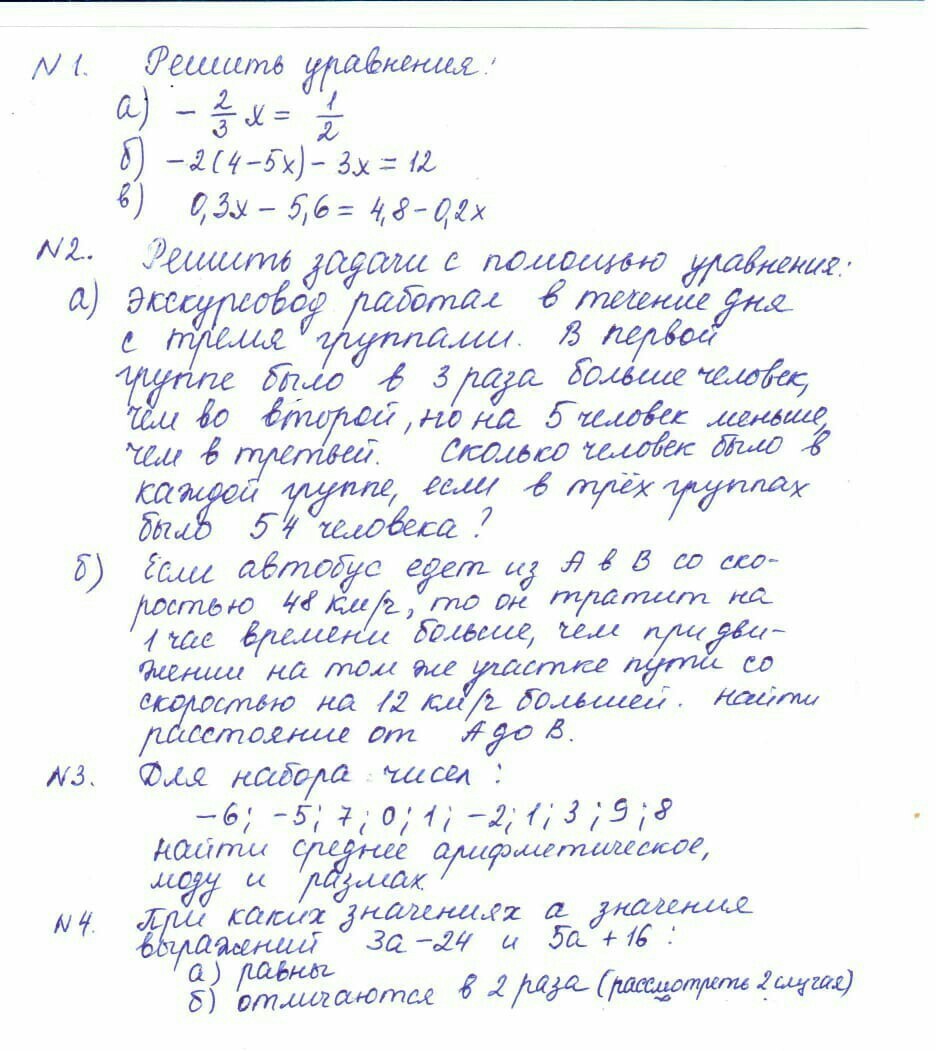 N1. Решить уравнения:
а) - 2/3 x = 1/2
б) -2(4-5x)-3x=12
в) 0,3x-5,6=4,8-0,2x
N2. Решить задачи с помощью уравнения:
а) Экскурсовод работал в течение дня
с тремя группами. В первой
группе было в 3 раза больше человек,
чем во второй, но на 5 человек меньше,
чем в третьей. Сколько человек было в
каждой группе, если в трёх группах
было 54 человека?
б) Если автобус едет из А в В со ско-
ростью 48 км/ч, то он тратит на
1 час времени больше, чем при дви-
жении на том же участке пути со
скоростью на 12 км/ч большей. Найти
расстояние от А до В.
N3. Для набора чисел:
-6; -5; 7; 0; 1; -2; 1; 3; 9; 8
найти среднее арифметическое,
моду и размах.
N4. При каких значениях а значения
выражений 3а-24 и 5а+16:
а) равны
б) отличаются в 2 раза (рассмотреть 2 случая)